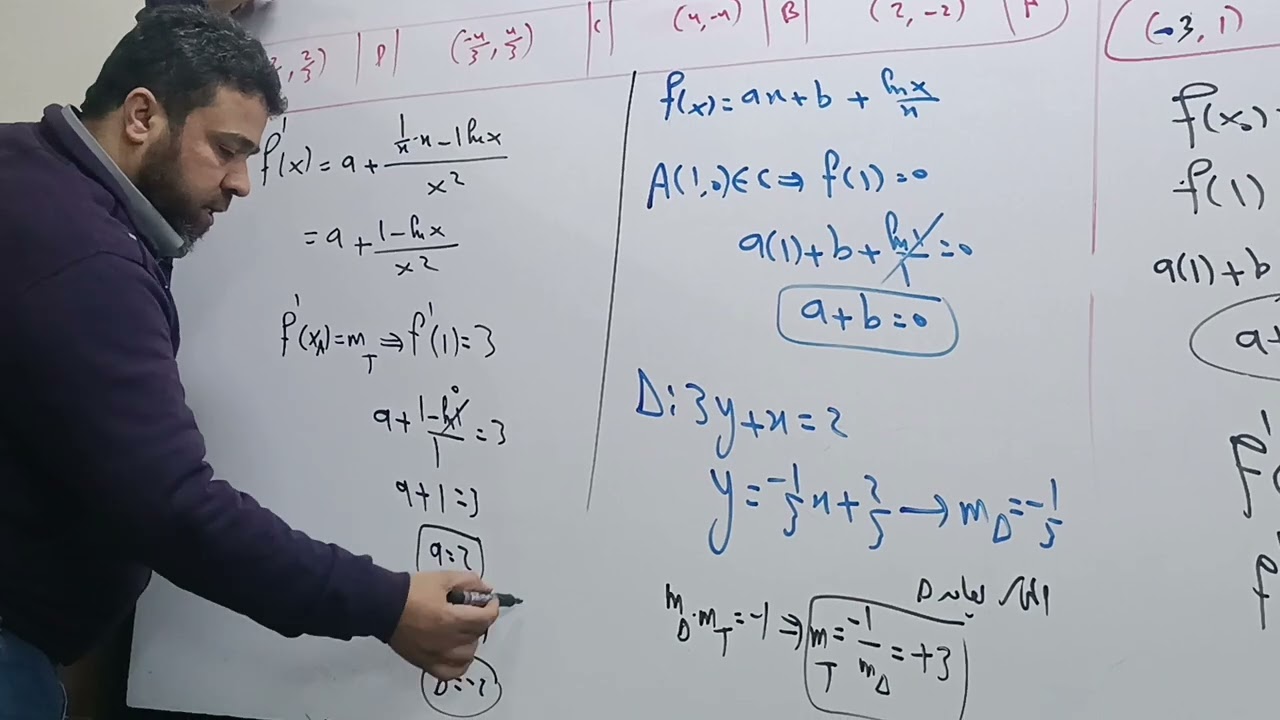 2, 2/3) | D | (-4/3, 4/3) | C | (4, -4) | B | (2, -2) | A
(-3, 1)
f'(x) = a + (1/x · x - 1 ln x)/x²
= a + (1 - ln x)/x²
f'(x_A) = m_T ⇒ f'(1) = 3
a + (1 - ln 1)/1 = 3
0
a + 1 = 3
a = 2
b = -2
f(x) = ax + b + ln x/x
A(1, 0) ∈ C ⇒ f(1) = 0
a(1) + b + ln 1/1 = 0
a + b = 0
Δ: 3y + x = 2
y = -1/3 x + 2/3 → m_Δ = -1/3
m_Δ · m_T = -1 ⇒ m_T = -1/m_Δ = +3
f(x₀) =
f(1)
a(1) + b
a +
f'(
f